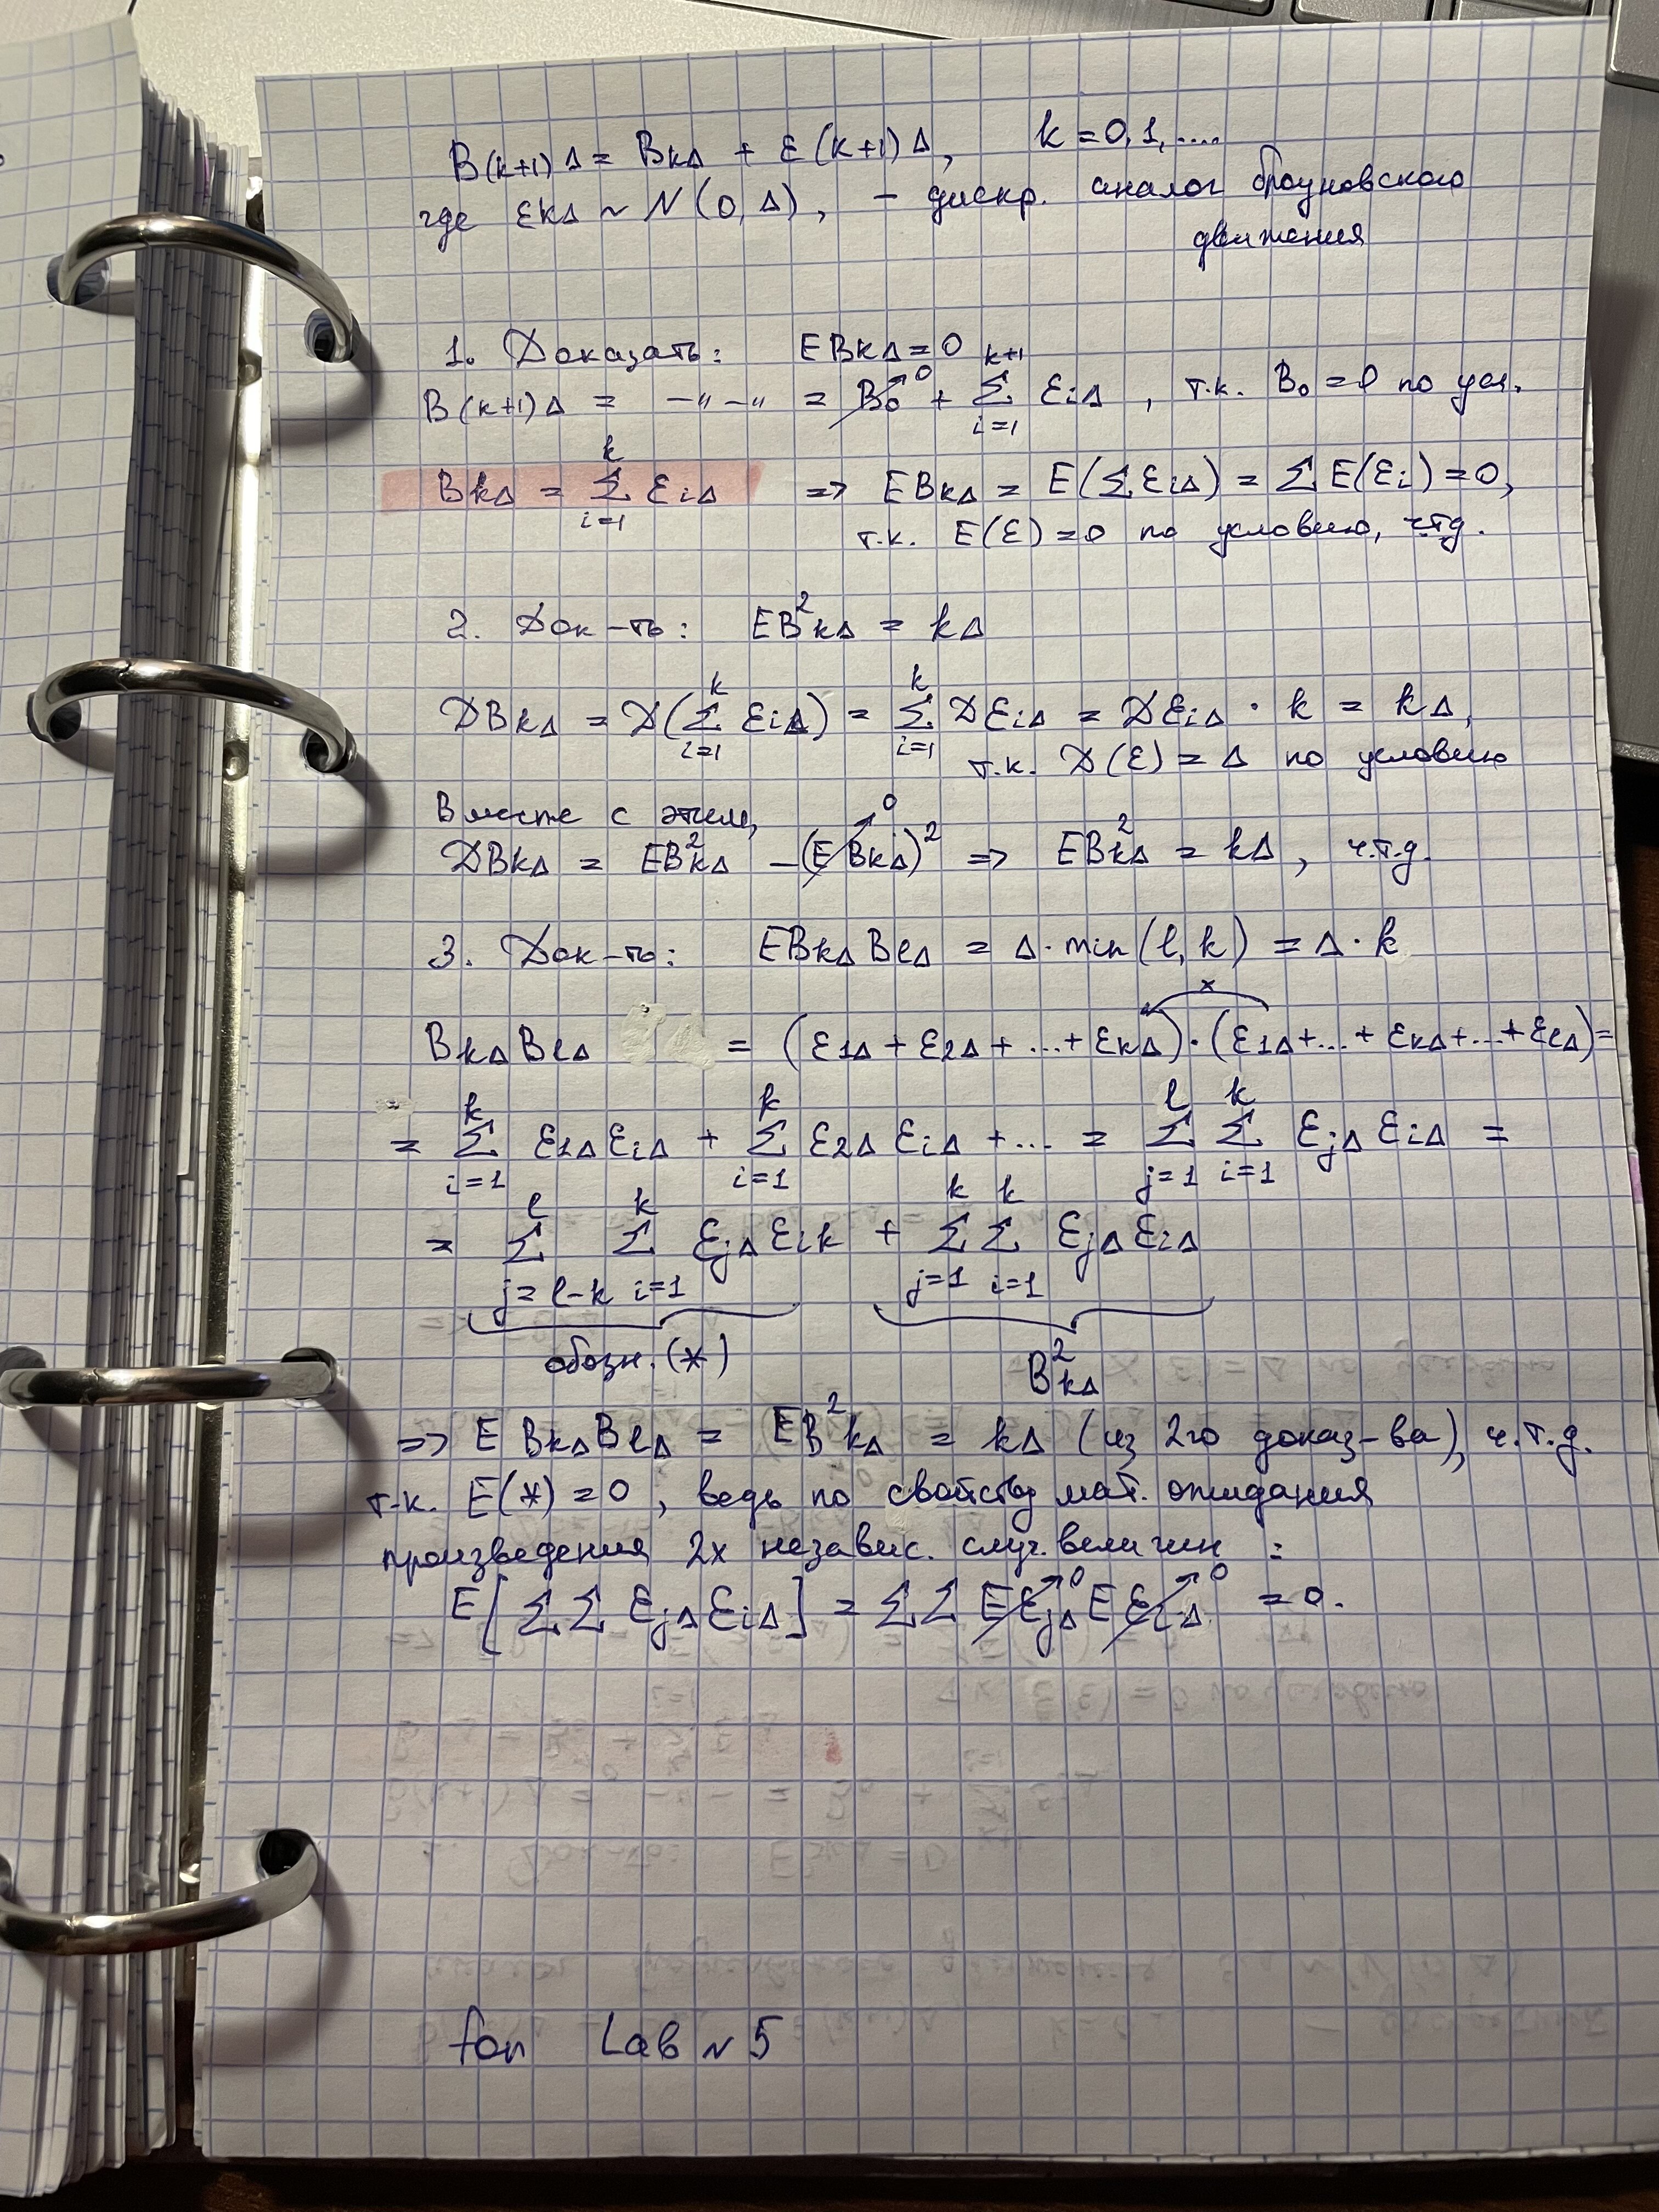 B(k+1)Δ = BkΔ + ε(k+1)Δ, k = 0,1,....
где εkΔ ~ N(0,Δ), – дискр. аналог броуновского
движения
1. Доказать: EBkΔ = 0
B(k+1)Δ = –"–" = B₀↗0 + ∑_{i=1}^{k+1} εiΔ, т.к. B₀ = 0 по усл.
BkΔ = ∑_{i=1}^{k} εiΔ => EBkΔ = E(∑εiΔ) = ∑E(εi) = 0,
т.к. E(ε) = 0 по условию, чтд.
2. Док-ть: EB²kΔ = kΔ
DBkΔ = D(∑_{i=1}^{k} εiΔ) = ∑_{i=1}^{k} DεiΔ = DεiΔ · k = kΔ,
т.к. D(ε) = Δ по условию
Вместе с этим,
DBkΔ = EB²kΔ – (EBkΔ)²↗0 => EB²kΔ = kΔ, ч.т.д.
3. Док-ть: EBkΔBlΔ = Δ·min(l,k) = Δ·k
x
BkΔBlΔ = (ε1Δ + ε2Δ + ...+ εkΔ)·(ε1Δ+...+ εkΔ+...+εlΔ) =
= ∑_{i=1}^{k} ε1Δ εiΔ + ∑_{i=1}^{k} ε2Δ εiΔ +... = ∑_{j=1}^{l} ∑_{i=1}^{k} εjΔ εiΔ =
= ∑_{j=l-k}^{l} ∑_{i=1}^{k} εjΔ εik + ∑_{j=1}^{k} ∑_{i=1}^{k} εjΔ εiΔ
обозн. (*) B²kΔ
=> E BkΔBlΔ = EB²kΔ = kΔ (из 2го доказ-ва), ч.т.д.
т.к. E(*) = 0, ведь по свойству мат. ожидания
произведения 2х независ. случ. величин :
E[∑∑ εjΔ εiΔ] = ∑∑ EεjΔ↗0 EεiΔ↗0 = 0.
for Lab ~ 5